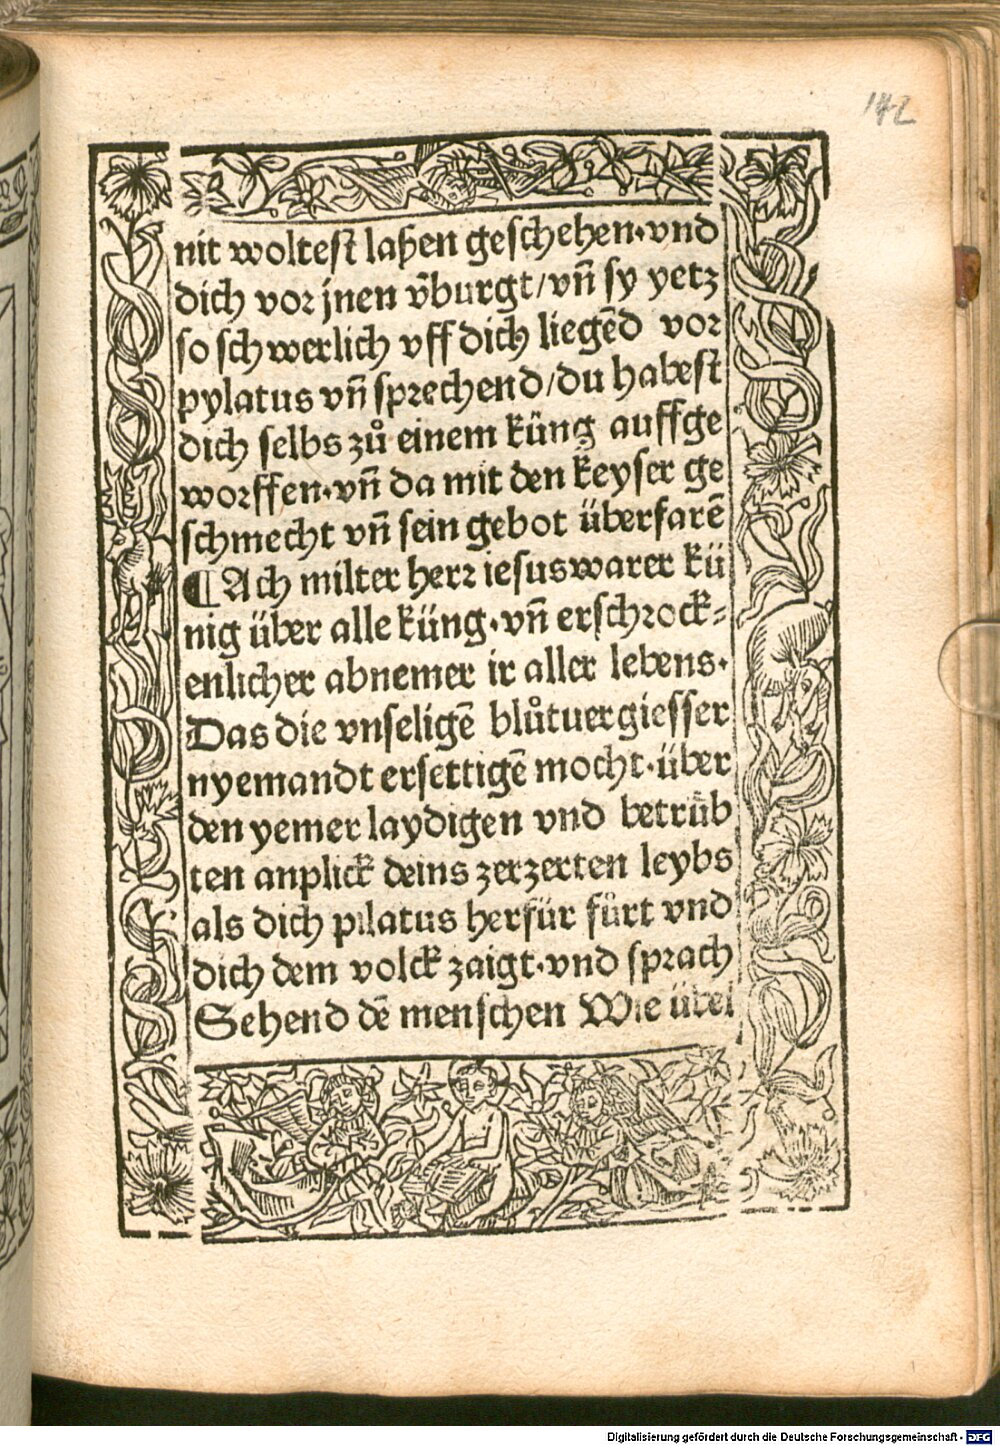 142
nit woltest laßen geschehen·vnd
dich vor jnen v̄burgt/vn̄ sy yetz
so schwerlich vff dich liegēd vor
pylatus vn̄ sprechend/du habest
dich selbs zů einem küng auffge
worffen·vn̄ da mit den keyser ge
schmecht vn̄ sein gebot überfarē
¶Ach milter herr iesus warer kü
nig über alle küng·vn̄ erschrock⸗
enlicher abnemer ir aller lebens·
Das die vnseligē blůtuergiesser
nyemandt ersettigē mocht·über
den yemer laydigen vnd betrüb
ten anplick deins zerzerten leybs
als dich pilatus herfür fůrt vnd
dich dem volck zaigt·vnd sprach
Sehend dē menschen Wie übel
Digitalisierung gefördert durch die Deutsche Forschungsgemeinschaft - DFG